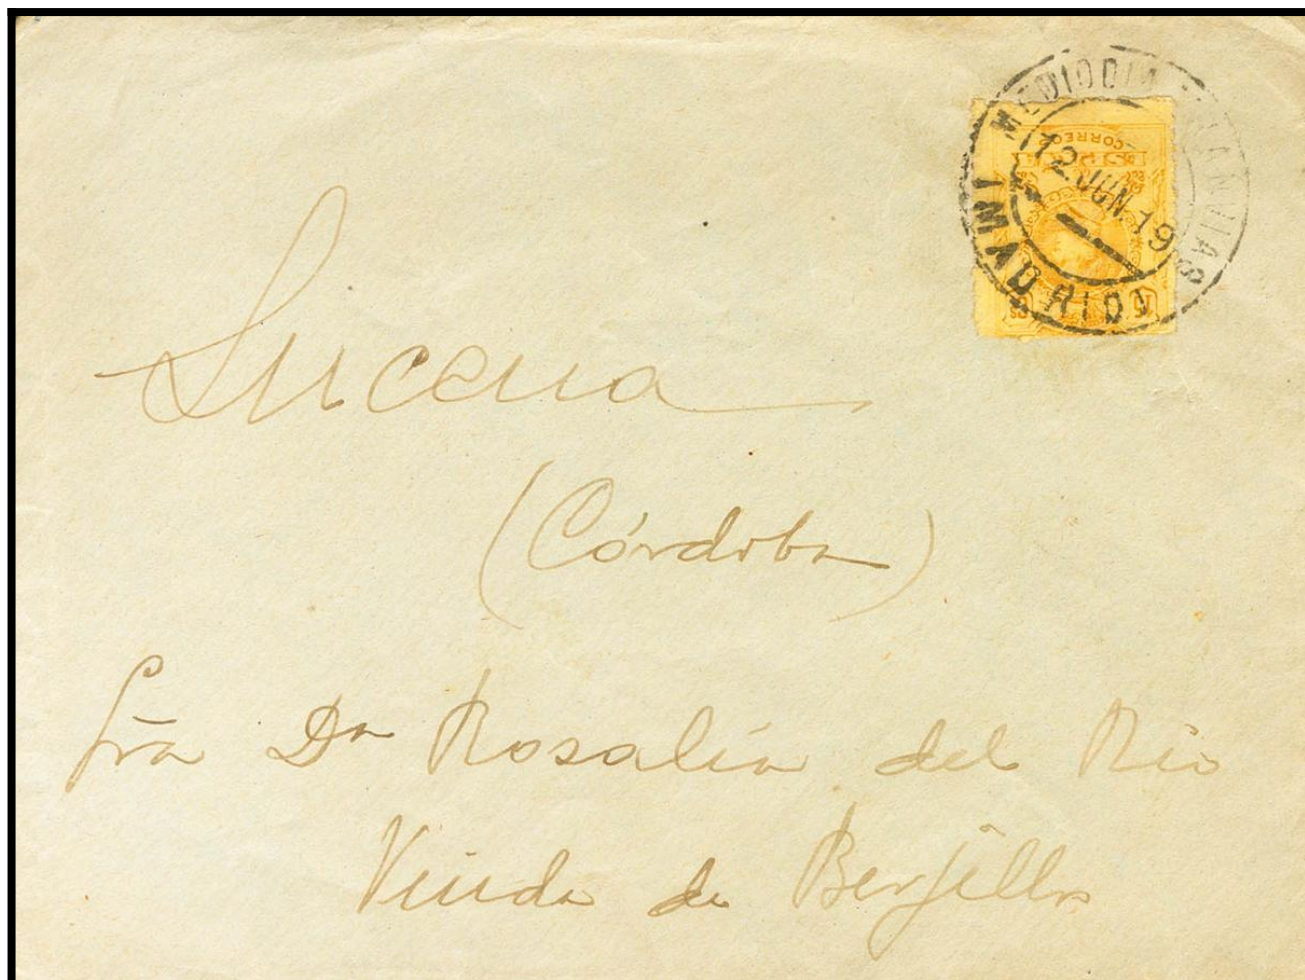 MEDIODIA TRANVIAS
12 JUN 19
MADRID
CORREOS
15 cs
Lucena
(Córdoba)
Sra Dª Rosalía del Río
Viuda de Berjillos